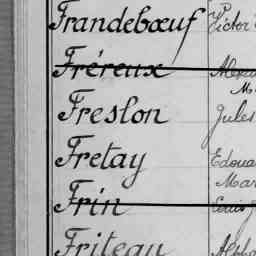 Frandebœuf Victor
Fréreux
Freslon Jules
Fretay Edoua
Mar
Frin Louis
Friteau